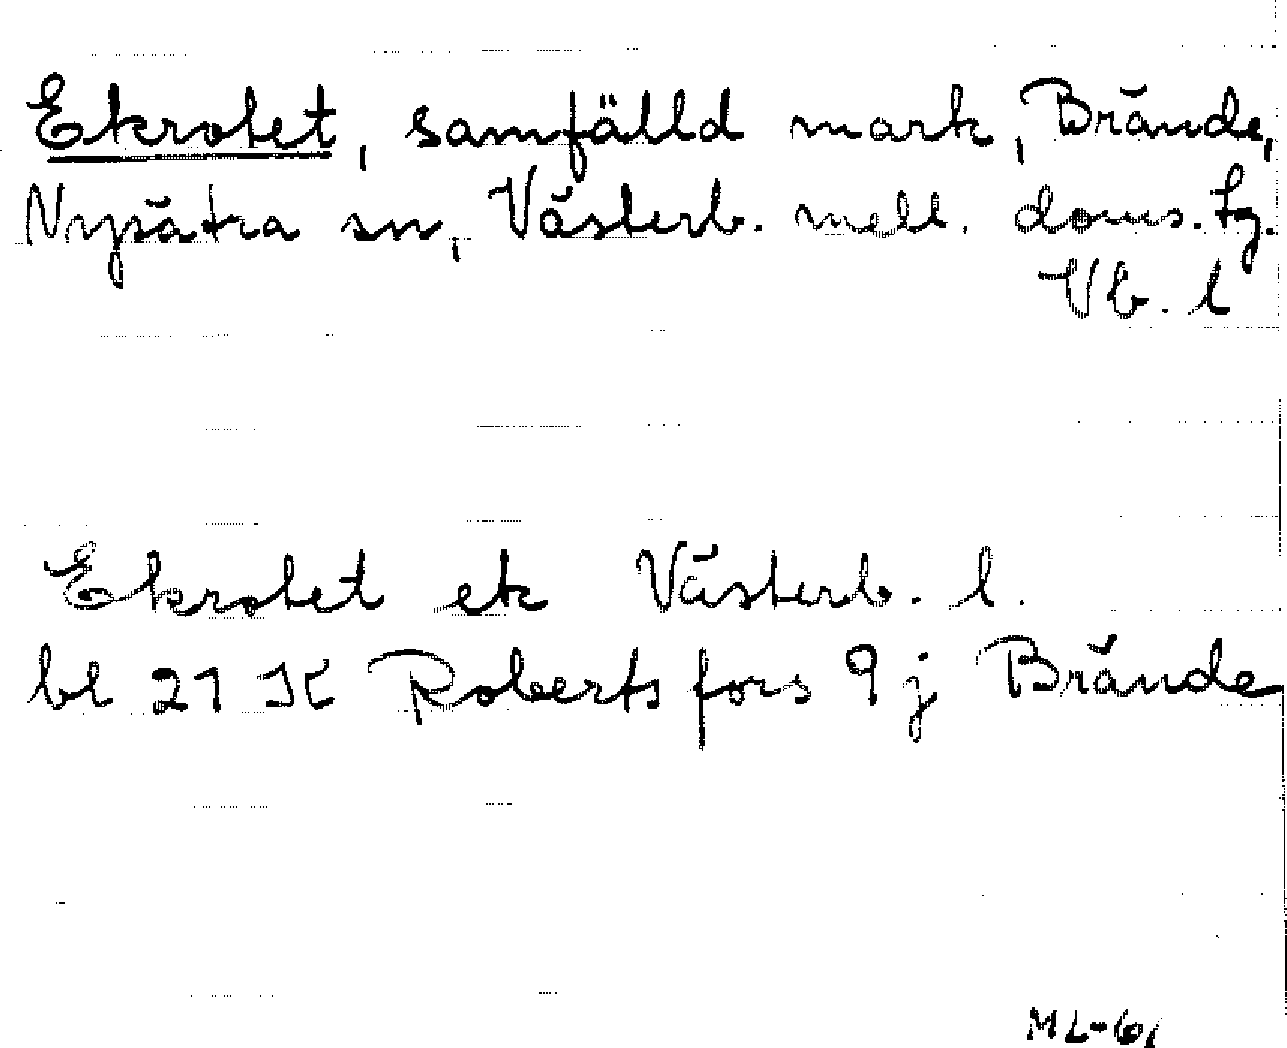 Ekrotet, samfälld mark, Brände,
Nysätra sn, Västerb. mell. doms. tg.
Vb. l
Ekrotet ek Västerb. l.
bl 21 K Robertsfors 9 j Brände
ML-61